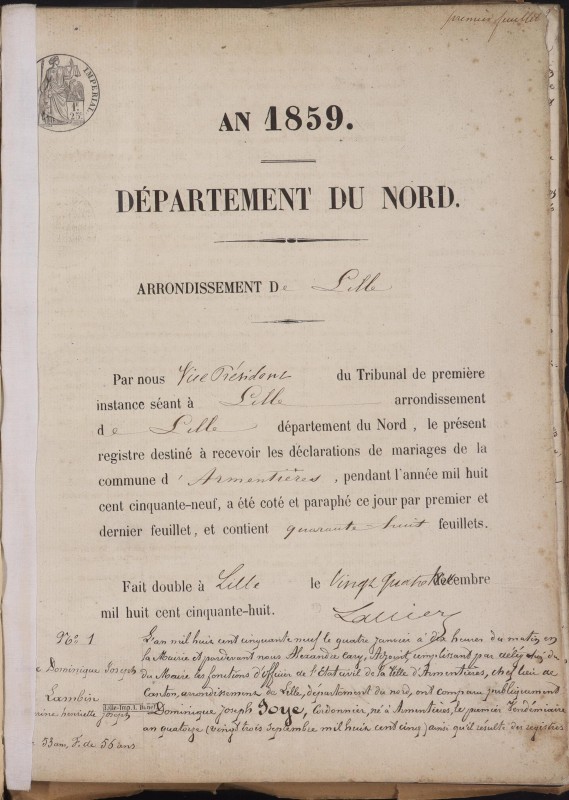 premier feuillet
IMPERIAL
1 F.
25
AN 1859.
DÉPARTEMENT DU NORD.
ARRONDISSEMENT De Lille
Par nous Vice Président du Tribunal de première
instance séant à Lille arrondissement
de Lille département du Nord, le présent
registre destiné à recevoir les déclarations de mariages de la
commune d'Armentières, pendant l'année mil huit
cent cinquante-neuf, a été coté et paraphé ce jour par premier et
dernier feuillet, et contient quarante huit feuillets.
Fait double à Lille le Vingt quatre décembre
mil huit cent cinquante-huit.
No 1
Dominique Joseph
Lambin
henriette Joseph
53 ans, F. de 56 ans
Lille-Imp.
L'an mil huit cent cinquante neuf le quatre janvier à dix heures du matin en
la Mairie et pardevant nous Alexandre Cary, Adjoint remplissant par délégation du
du Maire les fonctions d'officier de l'Etat civil de la Ville d'Armentières, chef lieu de
Canton, arrondissement de Lille, département du nord, ont comparu publiquement
Dominique Joseph Joye, Cordonnier, né à Armentières, le premier Vendémiaire
an quatorze (vingt trois septembre mil huit cent cinq) ainsi qu'il résulte des registres